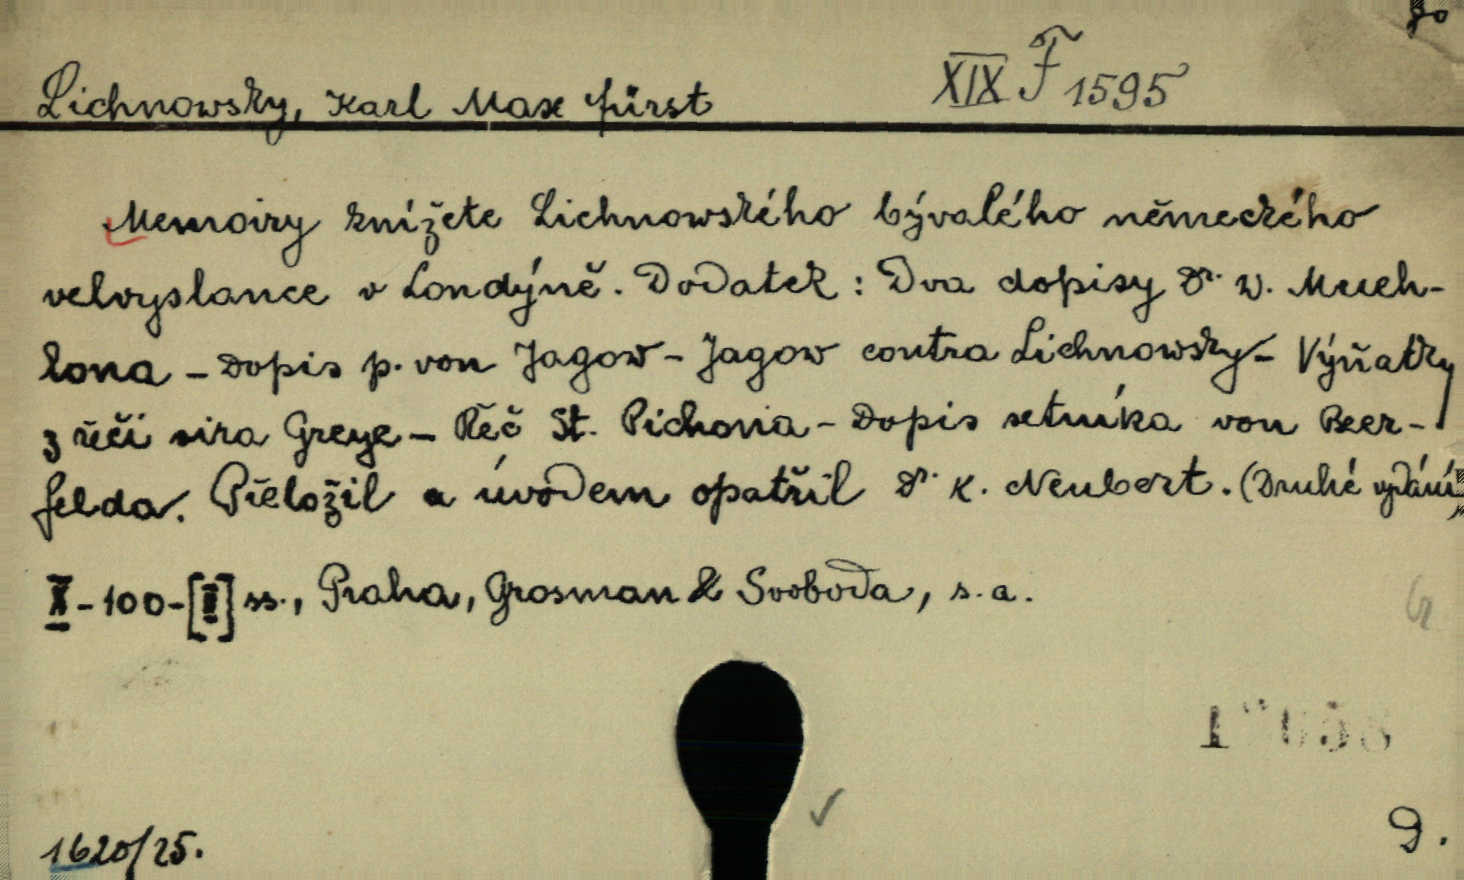 Lichnowsky, Karl Max fürst
XIX F 1595
Memoiry knížete Lichnowského bývalého německého
velvyslance v Londýně. Dodatek: Dva dopisy Dr. W. Mueh-
lona - Dopis p. von Jagow - Jagow contra Lichnowsky - Výňatky
z řeči sira Greye - Řeč St. Pichona - Dopis setníka von Beer-
felda. Přeložil a úvodem opatřil Dr. K. Neubert. (Druhé vydání)
X-100-[II] ss., Praha, Grosman & Svoboda, s.a.
1620/25.